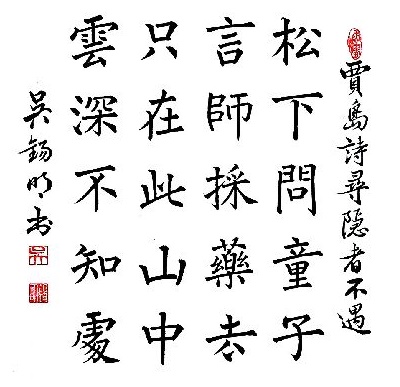 賈島詩尋隱者不遇
松下問童子
言師採藥去
只在此山中
雲深不知處
吳錫明书